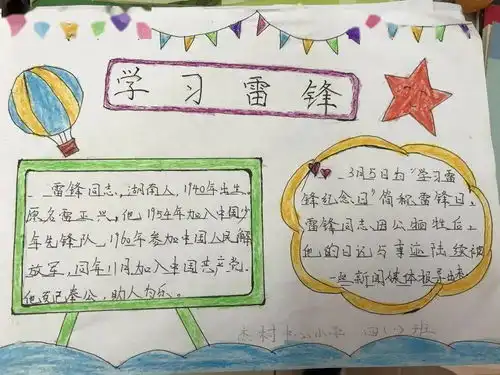 学习雷锋
雷锋同志,湖南人,1940年出生。
原名雷正兴,他1954年加入中国少
年先锋队,1960年参加中国人民解
放军,同年11月加入中国共产党。
他克己奉公,助人为乐。
3月5日为"学习雷
锋纪念日"简称雷锋日,
雷锋同志因公牺牲后,
他的日记与事迹陆续被
一些新闻媒体报导出来
村中心小学 四(1)班